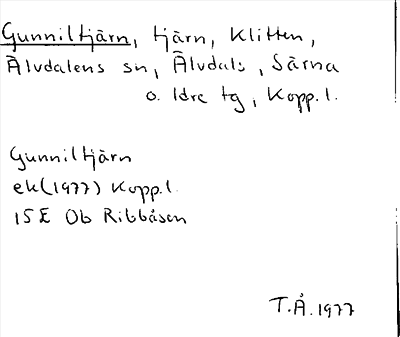 Gunniltjärn, tjärn, Klitten,
Älvdalens sn, Älvdals, Särna
o. Idre tg, Kopp.l.
Gunniltjärn
ek(1977) Kopp.l.
15E Ob Ribbåsen
T.Å. 1977